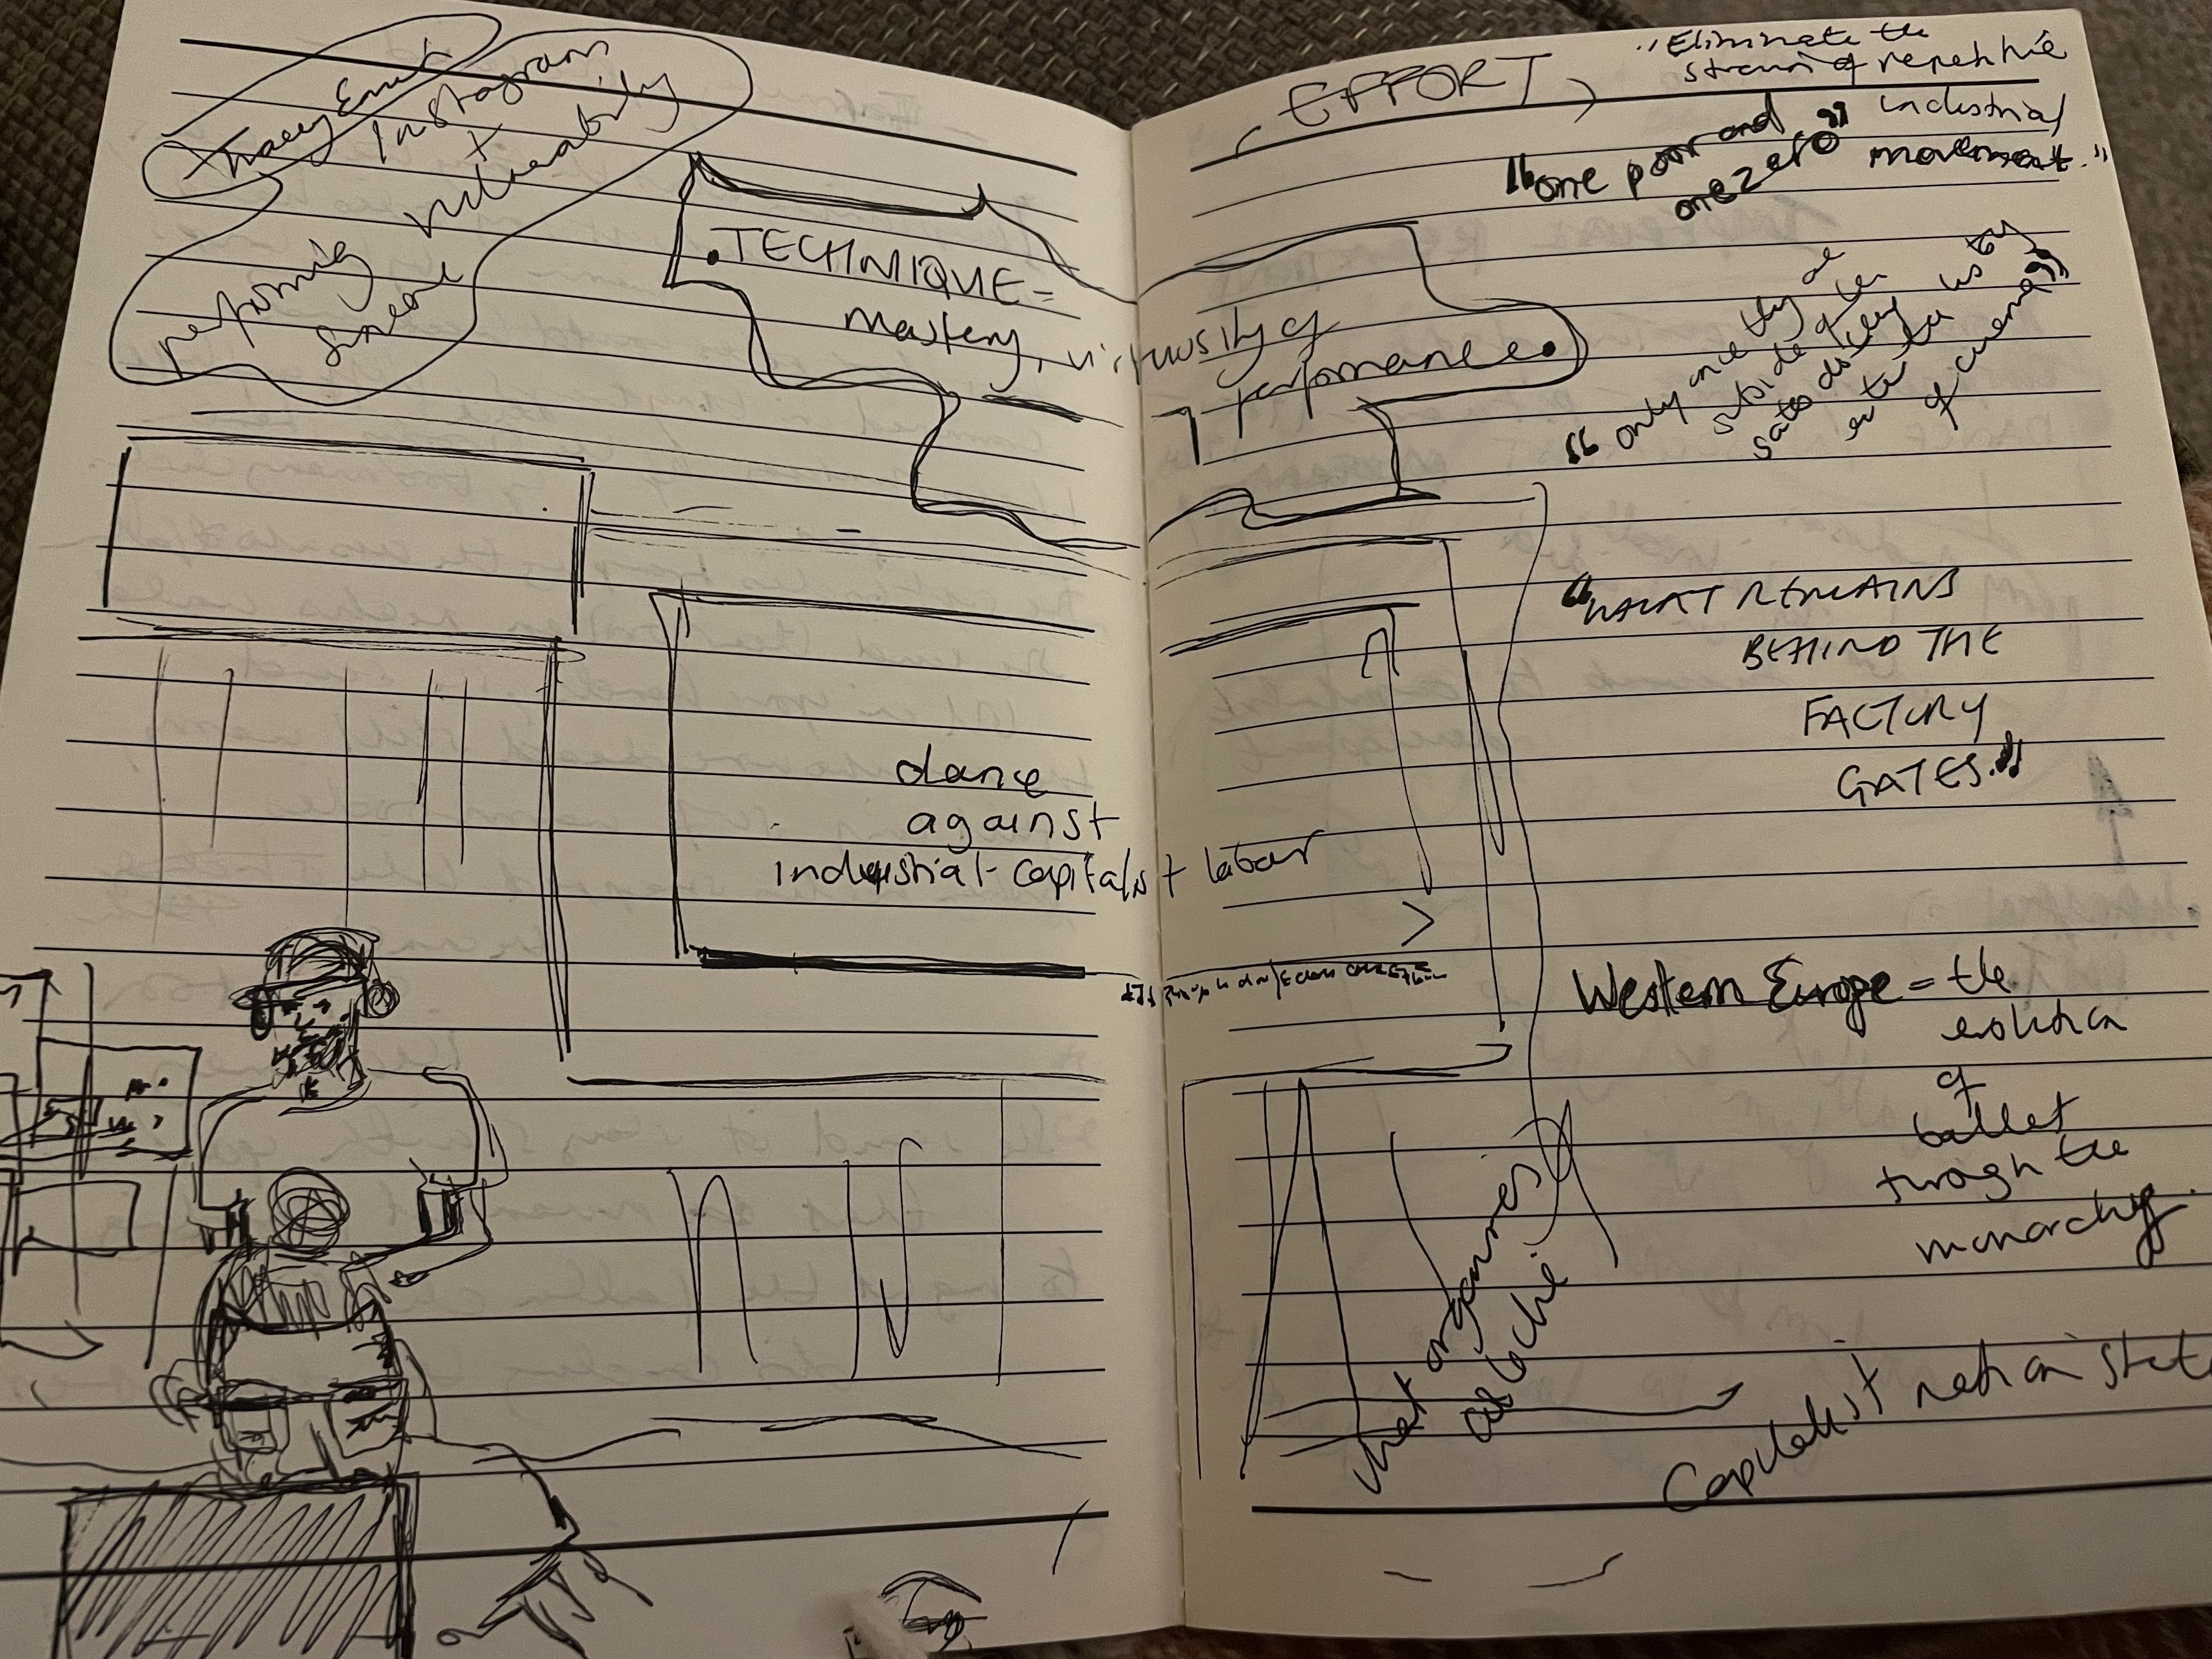 Tracey Emin
Instagram
+
vulnerability
performing
sincere
TECHNIQUE =
mastery, virtuosity of
performance.
dance
against
industrial-capitalist labour
EFFORT
"Eliminate the
strain of repetitive
industrial
movement."
"one poor and
one zero"
"only once they are
outside of
do they
enter the history
of cinema"
"WHAT REMAINS
BEHIND THE
FACTORY
GATES."
Western Europe = the
evolution
of
ballet
through the
monarchy.
what organises
Capitalist nation state